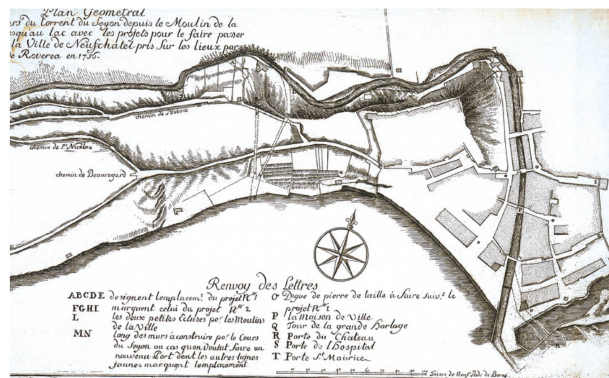 Plan Geometral
du Torrent du Seyon depuis le Moulin de la
jusqu'au lac avec les projets pour le faire passer
la Ville de Neufchatel pris sur les lieux par
de Roverea en 1756.
chemin de
chemin de St Nicolas
chemin de Beauregard
Renvoy des Lettres
ABCDE designent lemplacemt. du projet No 1
FGHI marquent celui du projet No 2
L les deux petites Ecluses por. les Moulins
de la Ville
MN long des murs à construire por. le Cours
du Seyon au cas qu'on voulut faire un
nouveau Port dont les autres lignes
jaunes marquent lemplacement
O Digue de pierre de taille à faire suiv.t le
projet No 1
P la Maison de Ville
Q Tour de la grande Horloge
R Porte du Chateau
S Porte de l'Hospital
T Porte St Maurice